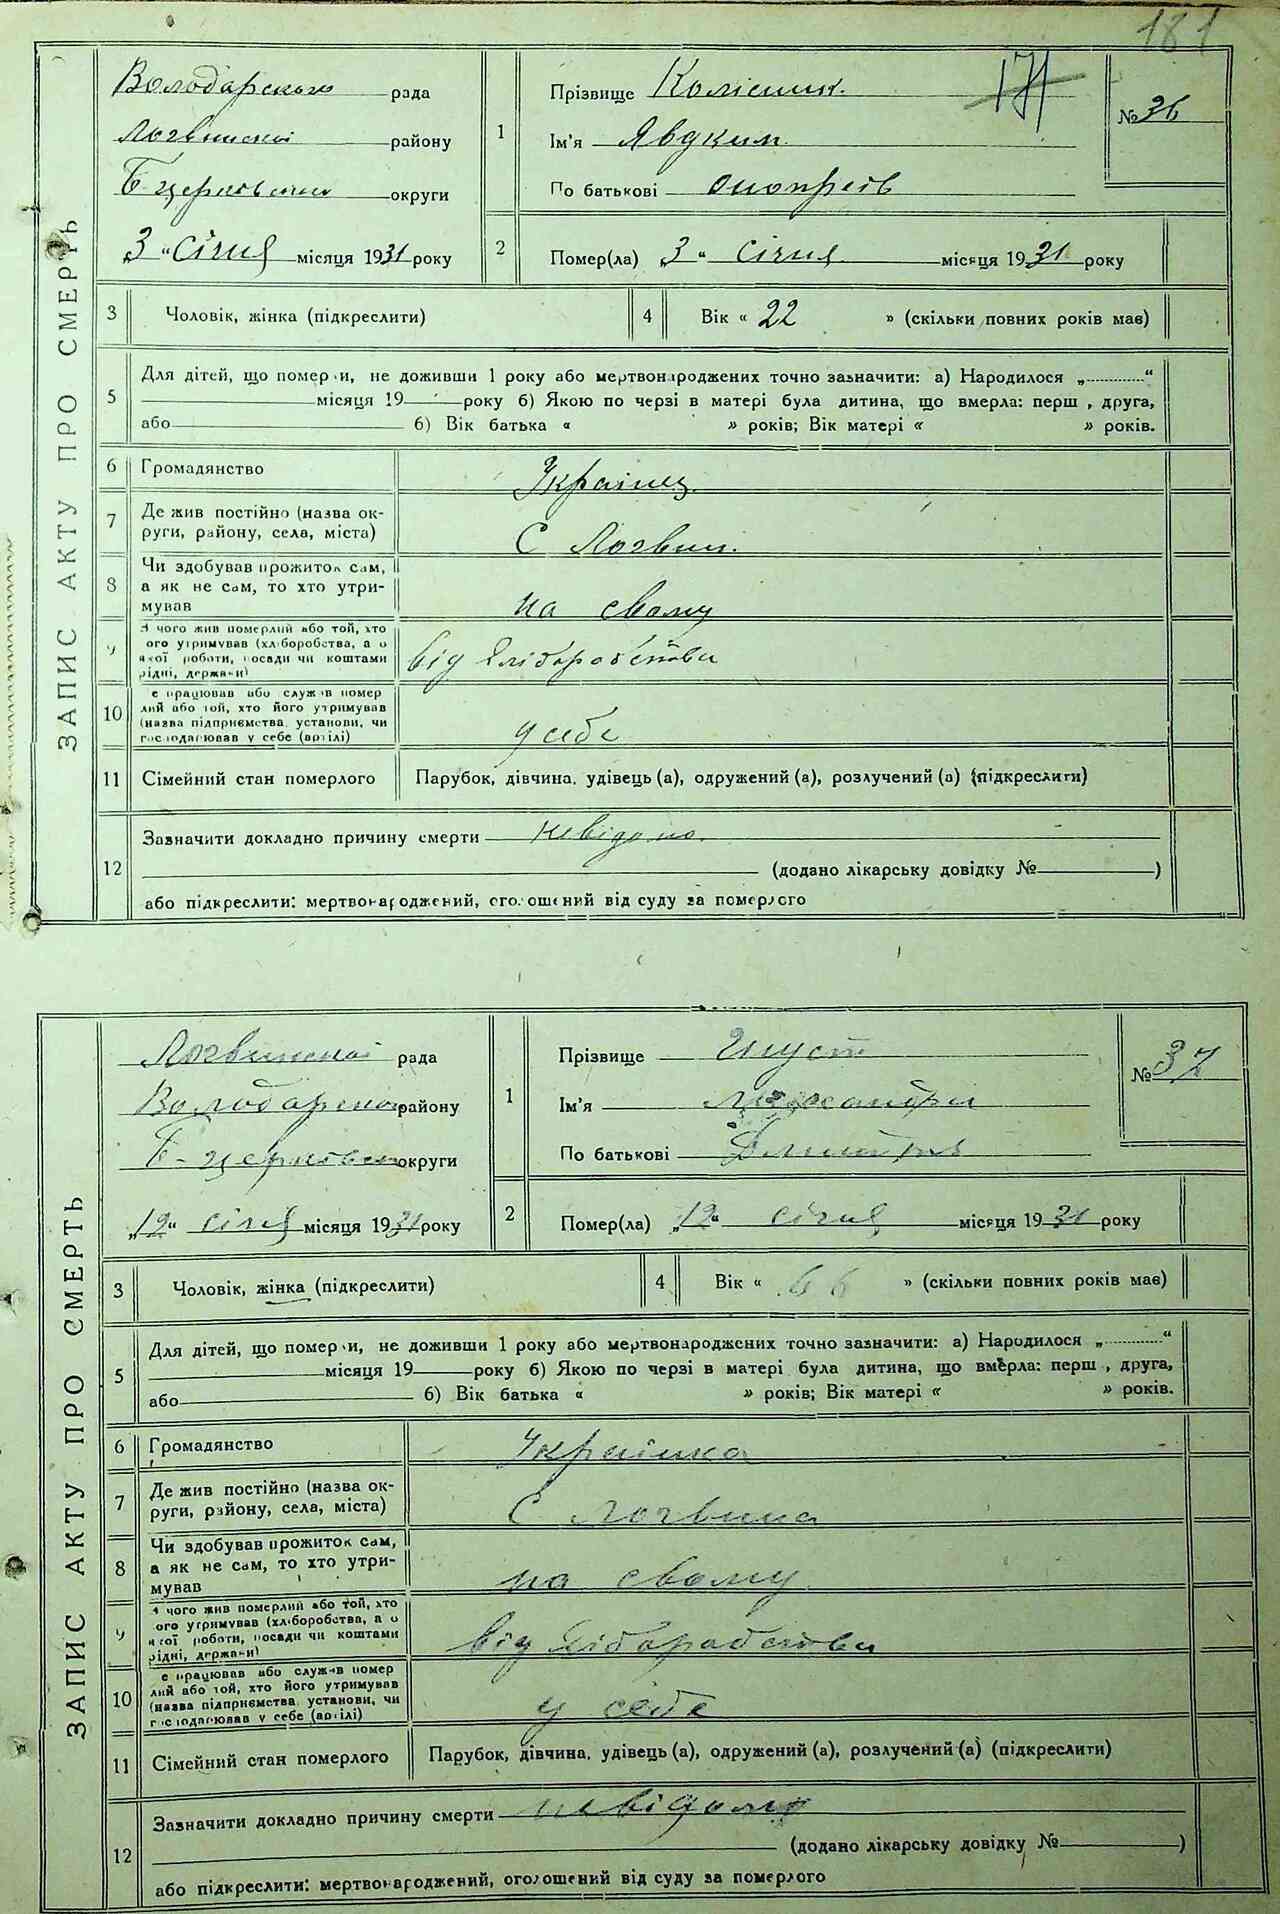 181
ЗАПИС АКТУ ПРО СМЕРТЬ
Володарською рада
Логвинської району
Б-церківський округи
„3“ Січня місяця 1931 року
1
Прізвище Колісник.
171
№ 36
Ім'я Явдким
По батькові Онопрієв
2 Помер(ла) „3“ січня місяця 1931 року
3 Чоловік, жінка (підкреслити)
4 Вік « 22 » (скільки повних років має)
5 Для дітей, що померли, не доживши 1 року або мертвонароджених точно зазначити: а) Народилося „............“
місяця 19 року б) Якою по черзі в матері була дитина, що вмерла: перш , друга,
або б) Вік батька « » років; Вік матері « » років.
6 Громадянство Українец
7 Де жив постійно (назва ок-
руги, району, села, міста) С Логвин.
8 Чи здобував прожиток сам,
а як не сам, то хто утри-
мував на свому
9 З чого жив померлий або той, хто
ого утримував (хліборобства, а о
якої роботи, посади чи коштами
рідні, держави) від Хліборобства
10 е працював або служив помер
лий або той, хто його утримував
(назва підприємства установи, чи
господарював у себе (артілі) у себе
11 Сімейний стан померлого Парубок, дівчина, удівець (а), одружений (а), розлучений (а) (підкреслити)
12 Зазначити докладно причину смерти невідомо
(додано лікарську довідку № )
або підкреслити: мертвонароджений, оголошений від суду за померлого
ЗАПИС АКТУ ПРО СМЕРТЬ
Логвинської рада
Володарського району
Б-церківський округи
„12“ січня місяця 1931 року
1
Прізвище
№ 37
Ім'я
По батькові Дмитрів
2 Помер(ла) „12“ січня місяця 1931 року
3 Чоловік, жінка (підкреслити)
4 Вік « 66 » (скільки повних років має)
5 Для дітей, що померли, не доживши 1 року або мертвонароджених точно зазначити: а) Народилося „............“
місяця 19 року б) Якою по черзі в матері була дитина, що вмерла: перш , друга,
або б) Вік батька « » років; Вік матері « » років.
6 Громадянство Українка
7 Де жив постійно (назва ок-
руги, району, села, міста) С Логвина
8 Чи здобував прожиток сам,
а як не сам, то хто утри-
мував на свому
9 З чого жив померлий або той, хто
ого утримував (хліборобства, а о
якої роботи, посади чи коштами
рідні, держави) від Хліборобства
10 е працював або служив помер
лий або той, хто його утримував
(назва підприємства установи, чи
господарював у себе (артілі) у себе
11 Сімейний стан померлого Парубок, дівчина, удівець (а), одружений (а), розлучений (а) (підкреслити)
12 Зазначити докладно причину смерти невідомо
(додано лікарську довідку № )
або підкреслити: мертвонароджений, оголошений від суду за померлого